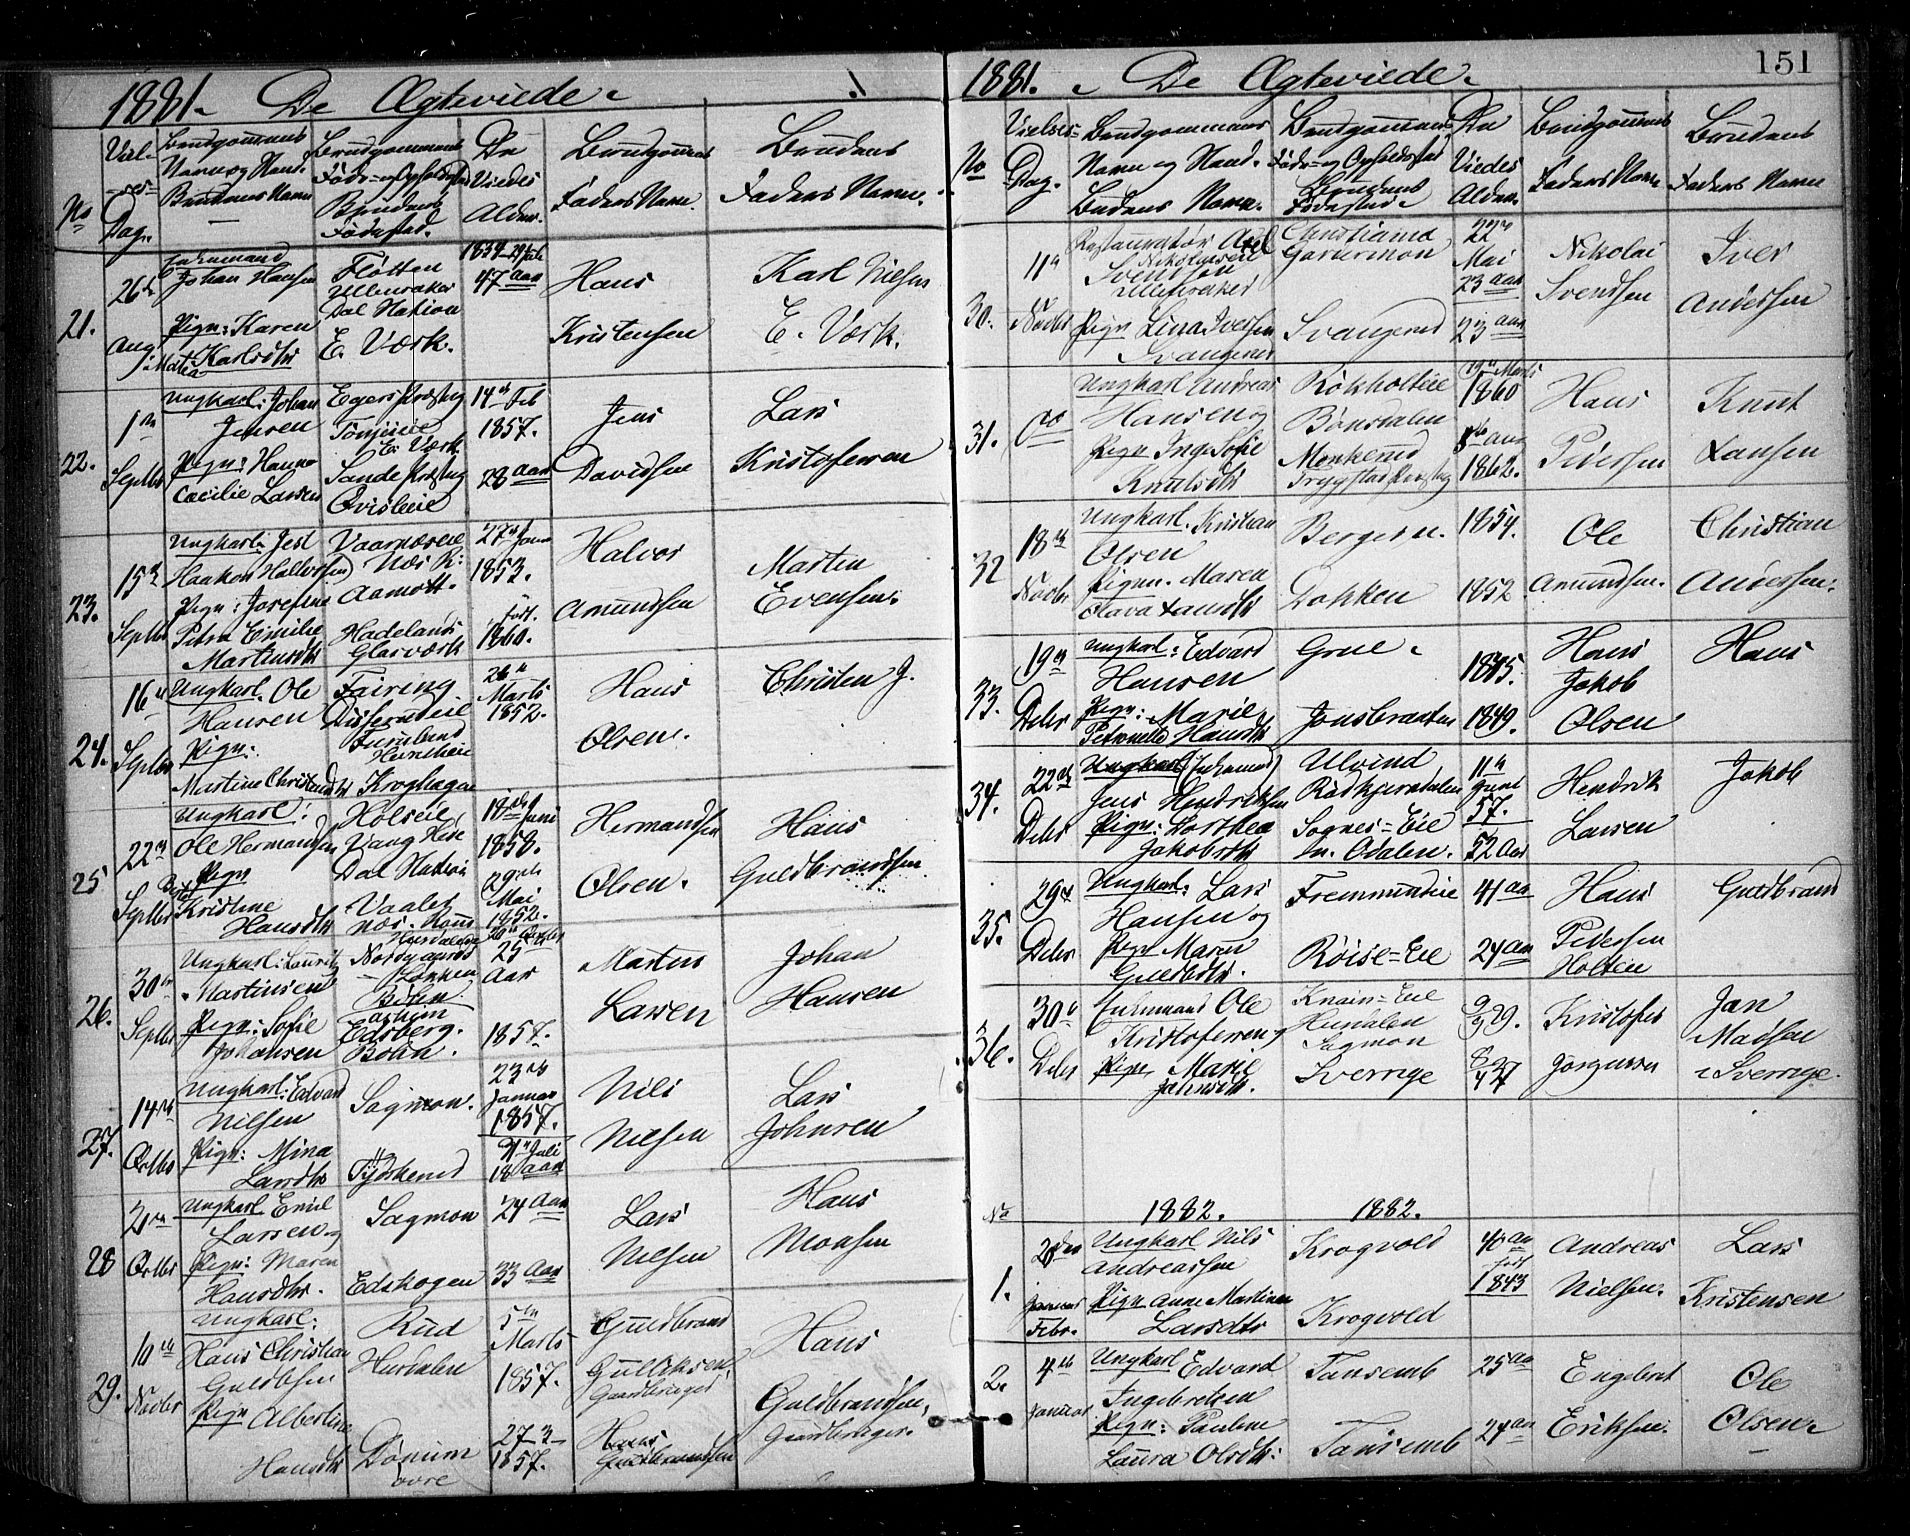 1881. De Ægteviede.
No
Viel-
ses-
Dag.
Brudgommens
Navn og Stand.
Brudens Navn
Brudgommens
Føde- og Opholdssted
Brudens
Fødested.
De
Viedes
Alder.
Brudgommens
Faders Navn.
Brudens
Faders Navn.
21.
26de
Aug
Enkemand
Johan Hansen
Pign: Karen
Karlsdtr
Fløtten
Ullensaker
Dal Station
E. Værk.
47 Aar
Hans
Kristensen
Karl Nielsen
E. Værk.
22.
1ste
Septbr
Ungkarl: Johan
Jensen
Pign: Hanna
Cæcilie Larsen
Egers Præstg
E. Værk
Sande Præstg
14de Feb
1857.
28 Aar
Jens
Davidsen
Lars
Kristofersen
23.
15de
Septbr
Ungkarl: Jest
Haakon Halvorsen
Pign: Josefine
Petra Emilie
Martinsdtr
Vaarnæseie
Næs R:
Aamott.
Hadelands
Glasværk
27de Janu
1853.
Født.
1860.
Halvor
Amundsen
Martin
Evensen.
24.
16de
Septbr
Ungkarl. Ole
Hansen
Pign:
Martine Christensdtr
Færing
Disserudeie
Kroghagen
26de
Marts
1852.
Hans
Olsen.
Christen J.
25
22de
Septbr
Ungkarl:
Ole Hermansen
Pign
Kristine
Hansdtr
Holseie
Vang Hede
Dal Station
Vaalet
Næs Roms
18de Juni
1850.
29de
Mai
1852.
Hermansen
Olsen.
Hans
Guldbrandsen
26.
30te
Septbr
Ungkarl: Lauritz
Martinsen
Pign: Sofie
Johansen
Bøhn
Edsberg.
Bøhn.
25
Aar
1857.
Martin
Larsen
Johan
Hansen
27.
14de
Octbr
Ungkarl: Edvard
Nilsen
Pign: Mina
Larsdtr
Sagmon.
Tydskerud
23de
Januar
1857.
Juli
18 Aar
Nils
Nilsen
Lars
Johnsen
28
21de
Octbr
Ungkarl Emil
Larsen og
Pign: Maren
Hansdtr.
Sagmon
Edskogen
24 Aar
33 Aar
Lars
Nilsen
Hans
Monsen
29.
10de
Novbr
Ungkarl:
Hans Christian
Guldbsen
Pign Albertine
Hansdtr
Rud
Hurdalen
Dønnum
øvre
5te
Marts
1857.
27-3
1857.
Guldbrand
Gulliksen
Gaardbruger
Hans
Guldbrandsen
Hans
Guldbrandsen,
Gaardbruger.
151
1881. De Ægteviede.
No
Vielses-
Dag.
Brudgommens
Navn og Stand.
Brudens Navn.
Brudgommens
Føde- og Opholdssted
Brudens
Fødested.
De
Viedes
Alder.
Brudgommens
Faders Navn
Brudens
Faders Navn
30.
11te
Novbr
Restauratør Axel
Nikolaisen
Svendsen
Ullensaker
Pign Lina Iversen
Svangerud
Christiania
Gardermoen
Svangerud
22de
Mai
23 Aar
23 Aar
Nikolai
Svendsen
Iver
Andersen
31.
do
Ungkarl Andreas
Hansen og
Pign Inge Sofie
Knutsdtr
Rökholteie
Bønsdalen
Monkerud
Trygstad Præstg
19de Marts
1860
1862.
Hans
Pedersen
Knut
Hansen
32
18de
Novbr
Ungkarl. Kristian
Olsen
Pign. Maren
Olava
Bergesen.
Dokken
1854.
1852
Ole
Amundsen.
Christian
Andersen.
33.
19de
Decbr
Ungkarl: Edvard
Hansen
Pign: Marie
Petronelle Hansdtr
Grue.
Jonsbraaten
1845.
1849.
Hans
Jakob
Olsen
Hans
34.
22de
Decbr
Ungkarl (Enkemand)
Jens Hendriksen
Pign: Dorthea
Jakobsdtr
Ulvind
Rødkjernsdalen
Sognes=Eie
Sn. Odalen.
11te
Juni
57.
52 Aar
Hendrik
Larsen
Jakob
35.
29de
Decbr
Ungkarl: Lars
Hansen og
Pign Maren
Guldbdtr.
Fremmundeie
Röise=Eie
41 Aar
24 Aar
Hans
Pedersen
Holten
Guldbrand
36.
30te
Decbr
Enkemand Ole
Kristofersen og
Pign Marie
Jansdtr.
Knain=Eie
Hurdalen
Sagmon
Sverrige
Kristofer
Jørgensen
Jan
Madsen
i Sverrige.
No
1882. 1882.
1.
Januar
Febr.
Ungkarl Nils
Andreassen
Pign Anne Martinea
Larsdtr
Krogvold
Krogvold
40 Aar
født
1843
Andreas
Nielsen.
Lars
Kristensen
2.
4de
Januar
Ungkarl Edvard
Ingebretsen
Pign: Pauline
Laura Olsdtr:
Tansemb
Tansemb
25 Aar
24 Aar
Engebret
Eriksen.
Ole
Olsen